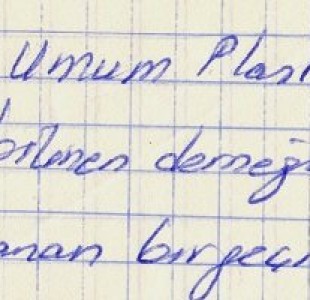 Umum Plas
bilinen derneğ
anan birgeçi